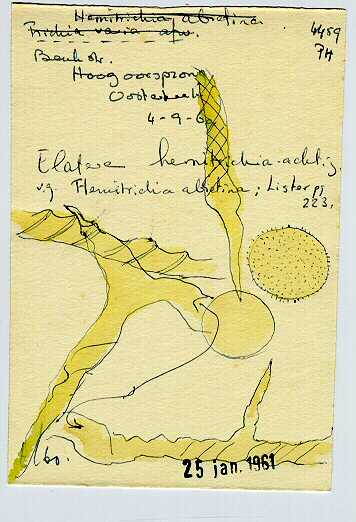 Hemitrichia abietina
Trichia varia afw.
4459
PH
Beuk str.
Hoogoorsprong
Oosterbeek
4-9-60
Elatere hemitrichia-achtig.
v.g. Hemitrichia abietina; Lister pg
223.
60.
25 jan. 1961